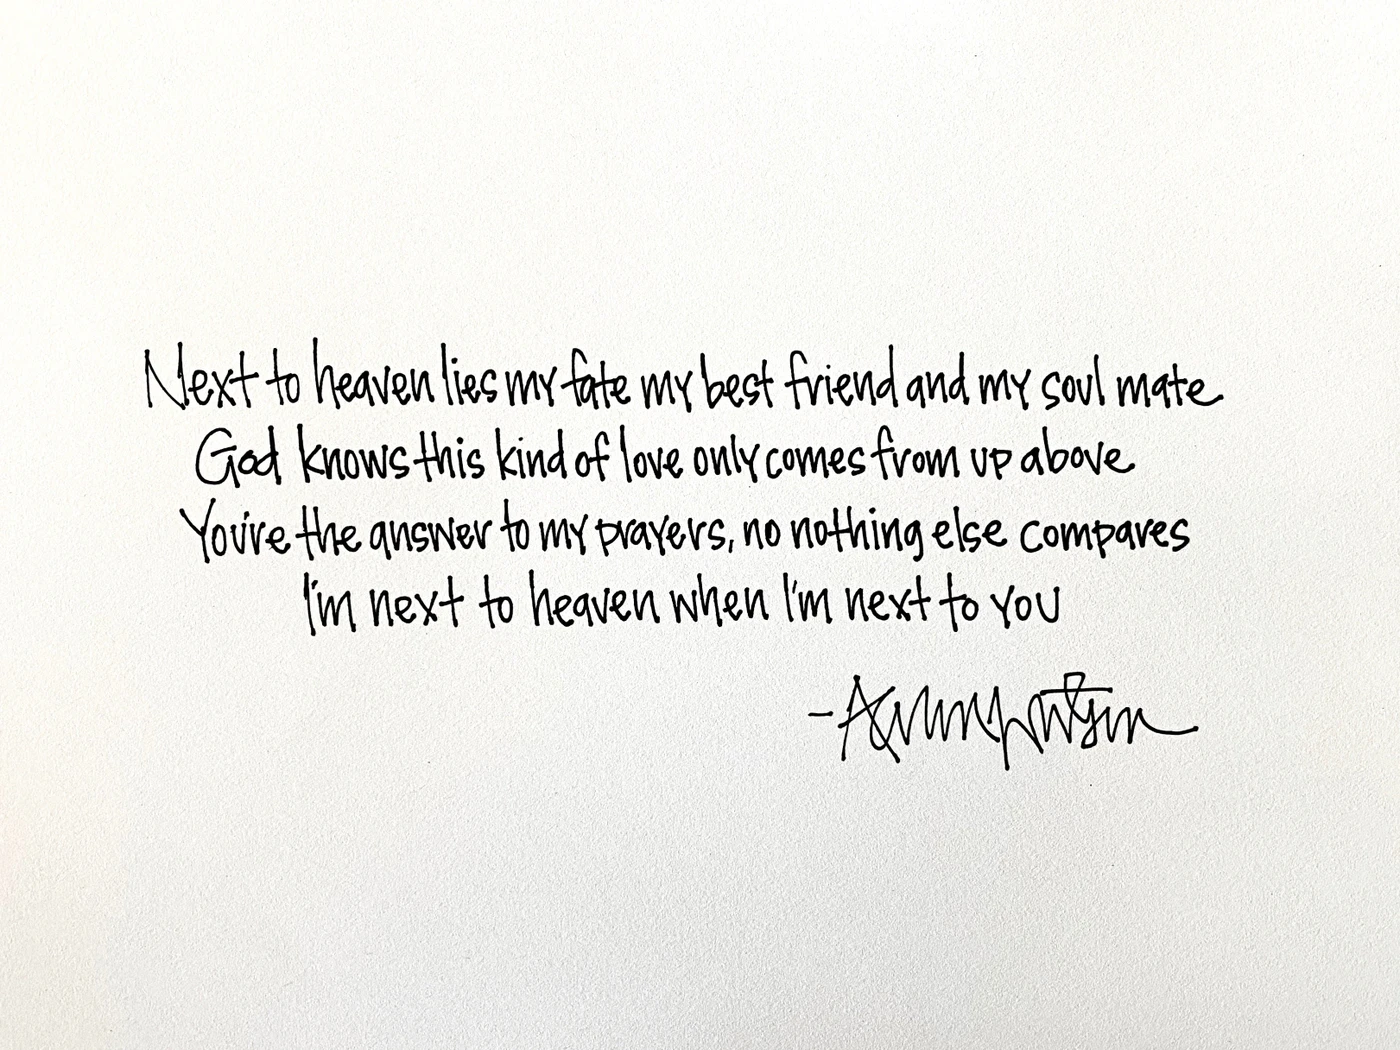 Next to heaven lies my fate my best friend and my soul mate
God knows this kind of love only comes from up above
You're the answer to my prayers, no nothing else compares
I'm next to heaven when I'm next to you